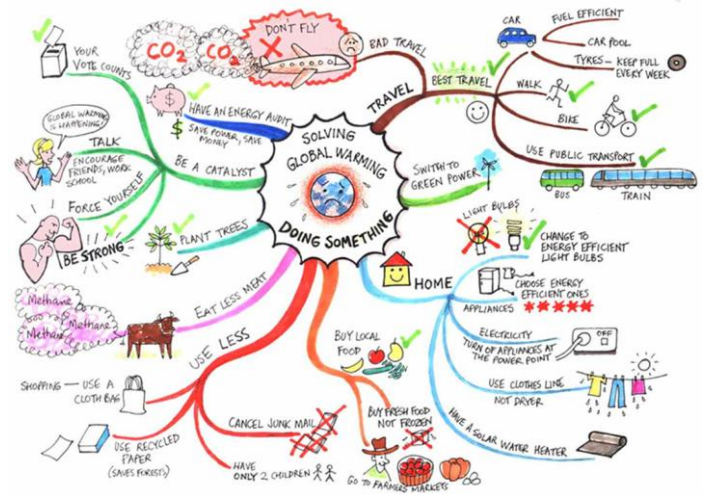 SOLVING
GLOBAL WARMING
DOING SOMETHING
TRAVEL
BAD TRAVEL
DON'T FLY
CO2
CO2
BEST TRAVEL
CAR
FUEL EFFICIENT
CAR POOL
TYRES — KEEP FULL
EVERY WEEK
WALK
BIKE
USE PUBLIC TRANSPORT
BUS
TRAIN
SWITCH TO
GREEN POWER
HOME
LIGHT BULBS
CHANGE TO
ENERGY EFFICIENT
LIGHT BULBS
APPLIANCES
CHOOSE ENERGY
EFFICIENT ONES
ELECTRICITY
TURN OF APPLIANCES AT
THE POWER POINT
OFF
USE CLOTHES LINE
NOT DRYER
HAVE A SOLAR WATER HEATER
BUY LOCAL
FOOD
BUY FRESH FOOD
NOT FROZEN
GO TO FARMERS MARKETS
USE LESS
SHOPPING — USE A
CLOTH BAG
USE RECYCLED
PAPER
(SAVES FORESTS)
CANCEL JUNK MAIL
HAVE
ONLY 2 CHILDREN
EAT LESS MEAT
Methane
Methane
Methane
PLANT TREES
BE A CATALYST
YOUR
VOTE COUNTS
TALK
ENCOURAGE
FRIENDS, WORK
SCHOOL
GLOBAL WARMING
IS HAPPENING!
FORCE YOURSELF
BE STRONG
HAVE AN ENERGY AUDIT
SAVE POWER, SAVE
MONEY
$